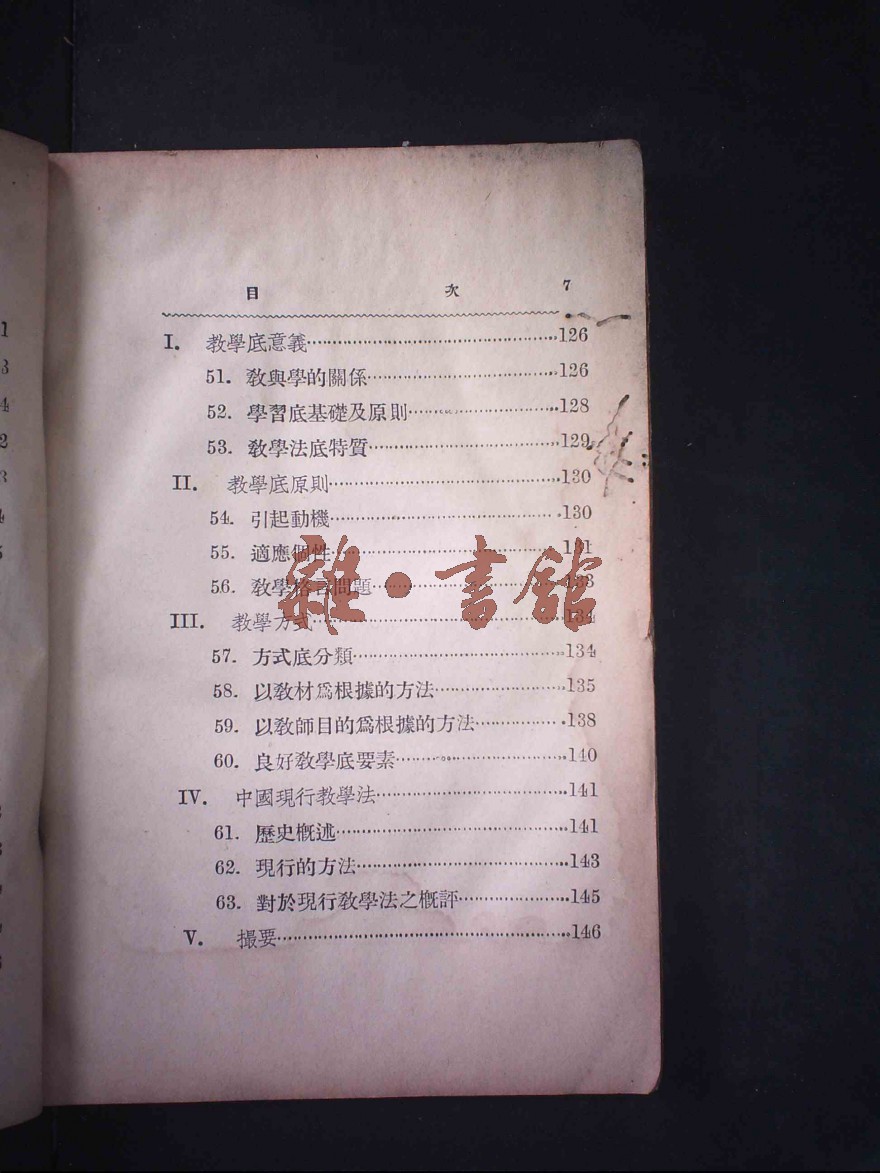 目 次 7
I. 教學底意義…………126
51. 教與學的關係…………126
52. 學習底基礎及原則…………128
53. 教學法底特質…………129
II. 教學底原則…………130
54. 引起動機…………130
55. 適應個性…………131
56. 教學格言問題…………133
III. 教學方式…………134
57. 方式底分類…………134
58. 以教材爲根據的方法…………135
59. 以教師目的爲根據的方法…………138
60. 良好教學底要素…………140
IV. 中國現行教學法…………141
61. 歷史概述…………141
62. 現行的方法…………143
63. 對於現行教學法之概評…………145
V. 撮要…………146
雜·書館